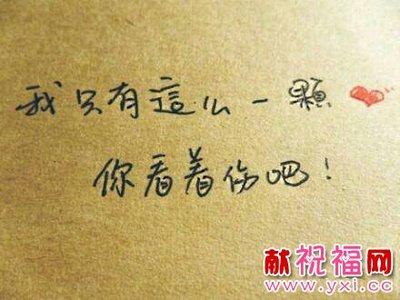 我只有這么一顆❤
你看着伤吧！
献祝福网
www.yxi.cc